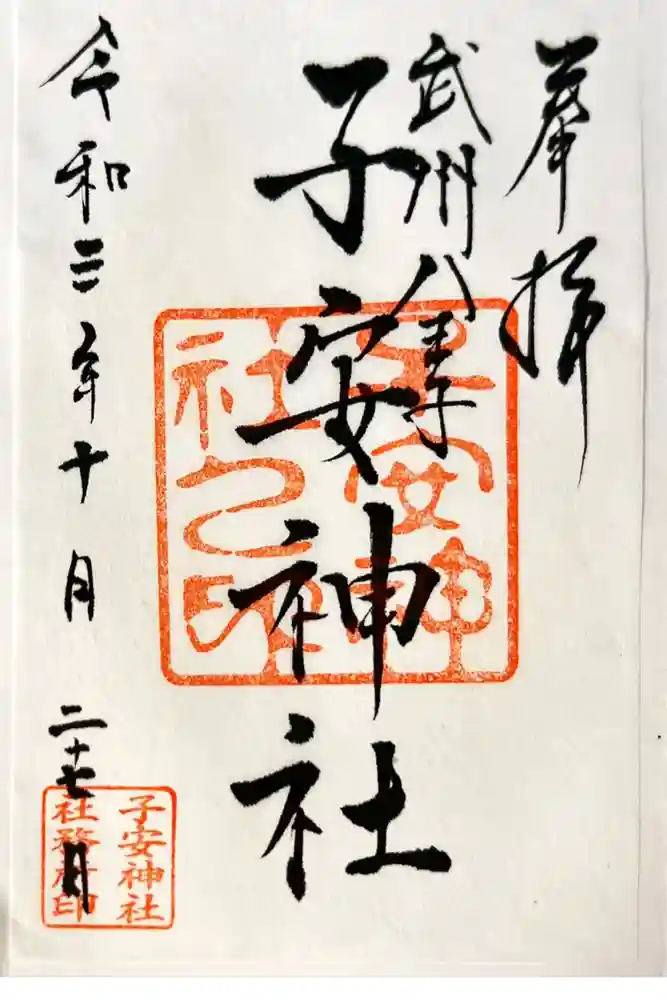 奉拝
武州八王子
子安神社
子安神
社之印
令和三年十月二十七日
子安神社
社務所印